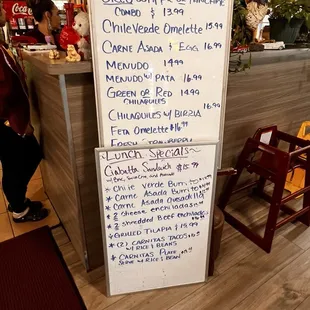 Coca-Cola
COMBO $ 13.99
Chile Verde Omelette 15.99
CARNE ASADA & Eggs 16.99
MENUDO 14.99
MENUDO W/ PATA 16.99
GREEN or RED 14.99
CHILAQUILES
CHILAQUILES W/ BIRZIA 16.99
FETA OMELETTE $16.99
Lunch Specials
Ciabatta Sandwich $15.99
* Chile Verde Burri
* Carne Asada Burri
* Carne Asada Quesadill
* 3 Cheese enchiladas
* 3 Shredded Beef Enchiladas
* GRILLED Tilapia $15.99
* (2) CARNITAS TACOS
W/ RICE & BEANS
* CARNITAS Plate
Serve w/ RICE & BEANS